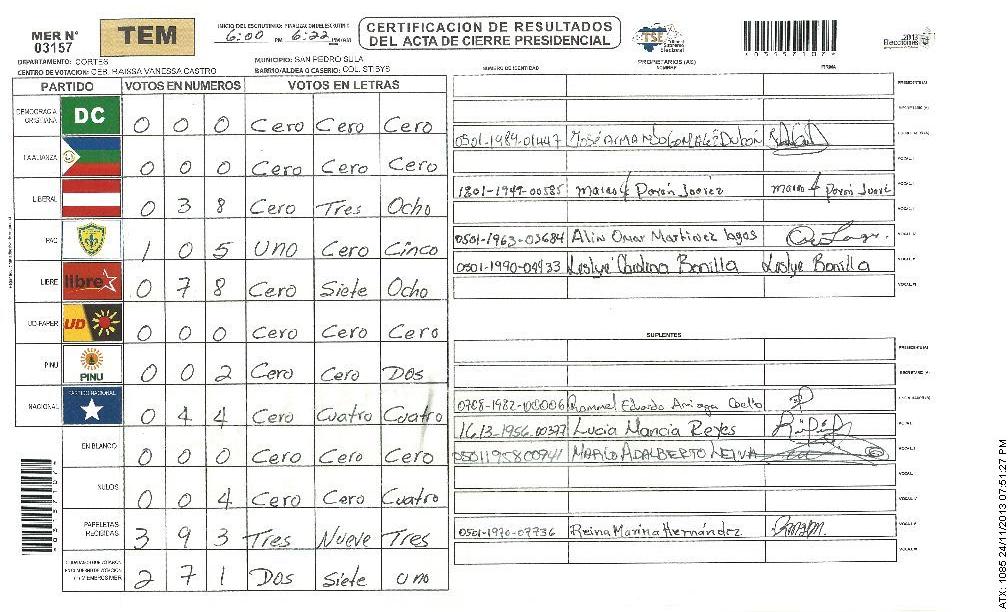 MER N° 03157
TEM
INICIO DEL ESCRUTINIO: FINALIZACION DEL ESCRUTINIO
6:00 PM 6:22 PM/AM
CERTIFICACION DE RESULTADOS
DEL ACTA DE CIERRE PRESIDENCIAL
TSE Tribunal Supremo Electoral
2013 Elecciones
DEPARTAMENTO: CORTES
MUNICIPIO: SAN PEDRO SULA
CENTRO DE VOTACION: CEB. RAISSA VANESSA CASTRO
BARRIO/ALDEA O CASERIO: COL. STIBYS
PARTIDO VOTOS EN NUMEROS VOTOS EN LETRAS
DEMOCRACIA CRISTIANA DC 0 0 0 Cero Cero Cero
FA ALIANZA 0 0 0 Cero Cero Cero
LIBERAL 0 3 8 Cero Tres Ocho
PAC 1 0 5 Uno Cero Cinco
LIBRE libre 0 7 8 Cero Siete Ocho
UD-FAPER UD 0 0 0 Cero Cero Cero
PINU PINU 0 0 2 Cero Cero Dos
NACIONAL PARTIDO NACIONAL 0 4 4 Cero Cuatro Cuatro
EN BLANCO 0 0 0 Cero Cero Cero
NULOS 0 0 4 Cero Cero Cuatro
PAPELETAS RECIBIDAS 3 9 3 Tres Nueve Tres
2 7 1 Dos Siete Uno
PROPIETARIOS (AS)
NUMERO DE IDENTIDAD NOMBRE FIRMA
PRESIDENTE(A)
SECRETARIO (A)
0501-1984-01447 José Armando
VOCAL I
1801-1949-00585
VOCAL
0501-1963-03684 Alin Omar Martinez lagos
0501-1990-04933 Leslye Carolina Bonilla Leslye Bonilla
VOCAL VI
SUPLENTES
PRESIDENTE(A)
SECRETARIO (A)
0708-1982-00006 Rommel Eduardo Coello
1613-1956-00377 Lucia Mancia Reyes
0501195800941 MARCO ADALBERTO LEIVA
0501-1970-07736 Reina Marina Hernández
ATX: 1085 24/11/2013 07:51:27 PM